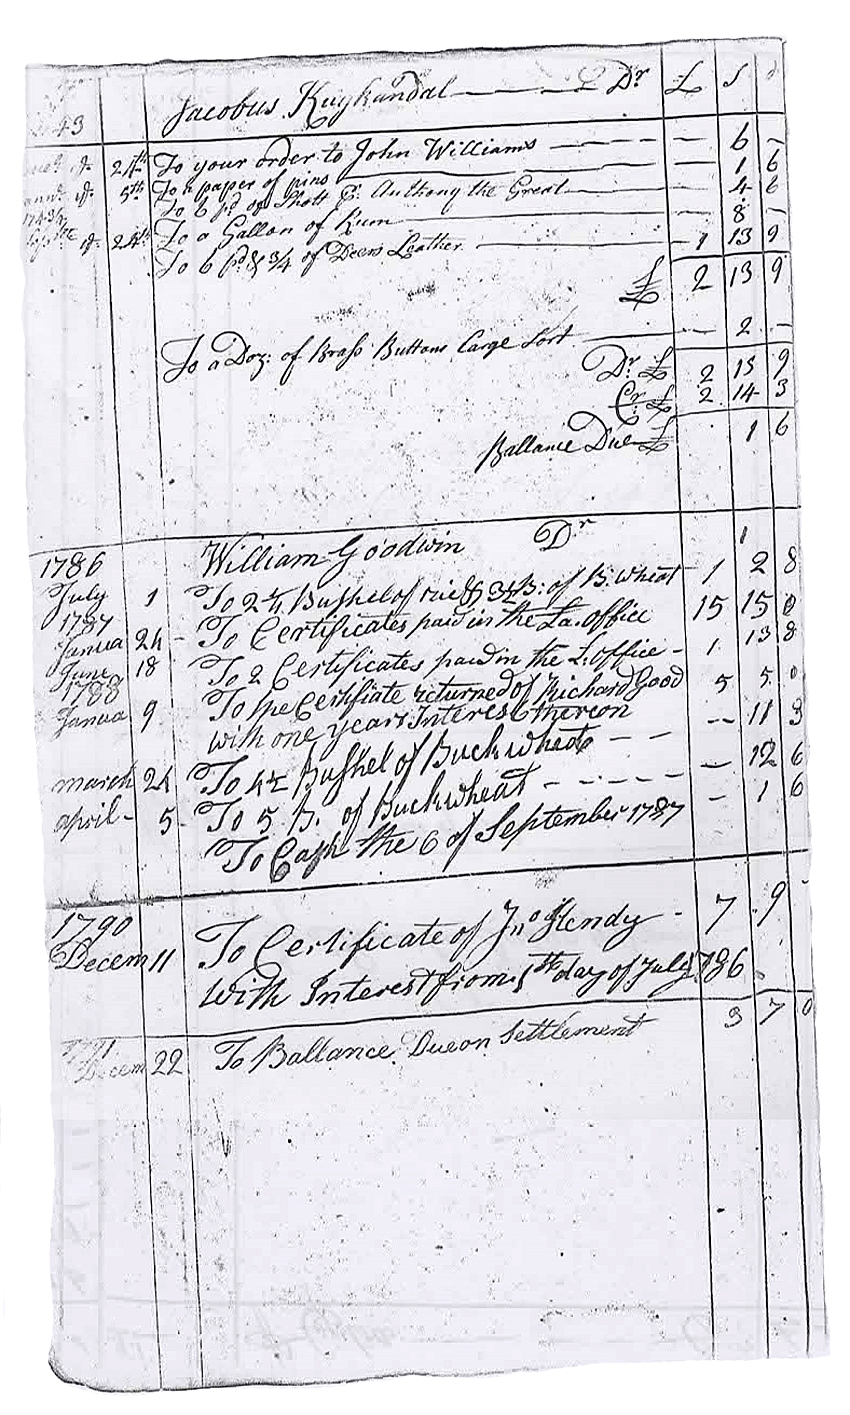 43 Jacobus Kuykandal Dr £ S d
24th To your order to John Williams — 6 —
5th To a paper of pins — 1 6
To 6 pd of Shott P: Anthony the Great — 4 6
1743/4
24th To a Gallon of Rum — 8 —
To 6 pd & 3/4 of Deers Leather 1 13 9
£ 2 13 9
To a Doz: of Brass Buttons Large Sort — 2 —
Dr £ 2 15 9
Cr £ 2 14 3
Ballance Due £ 1 6
1786 William Goodwin Dr
July 1 To 2 1/4 Bushel of & of B. wheat 1 2 8
1787
Janua 24 To Certificates paid in the La. office 15 15 0
June 18 To 2 Certificates paid in the L. office 1 13 8
1788
Janua 9 To the Certifiate returned of Richard Good 5 5 0
with one years Interest thereon
march 24 To 4 1/2 Bushel of Buckwheat — 11 3
april 5 To 5 B. of Buckwheat — 12 6
To Cash the 6 of September 1787 — 1 6
1790
Decem 11 To Certificate of Jno Hendy 7 9
With Interest from 1th day of July 1786
Decem 22 To Ballance Due on Settlement 3 7 0